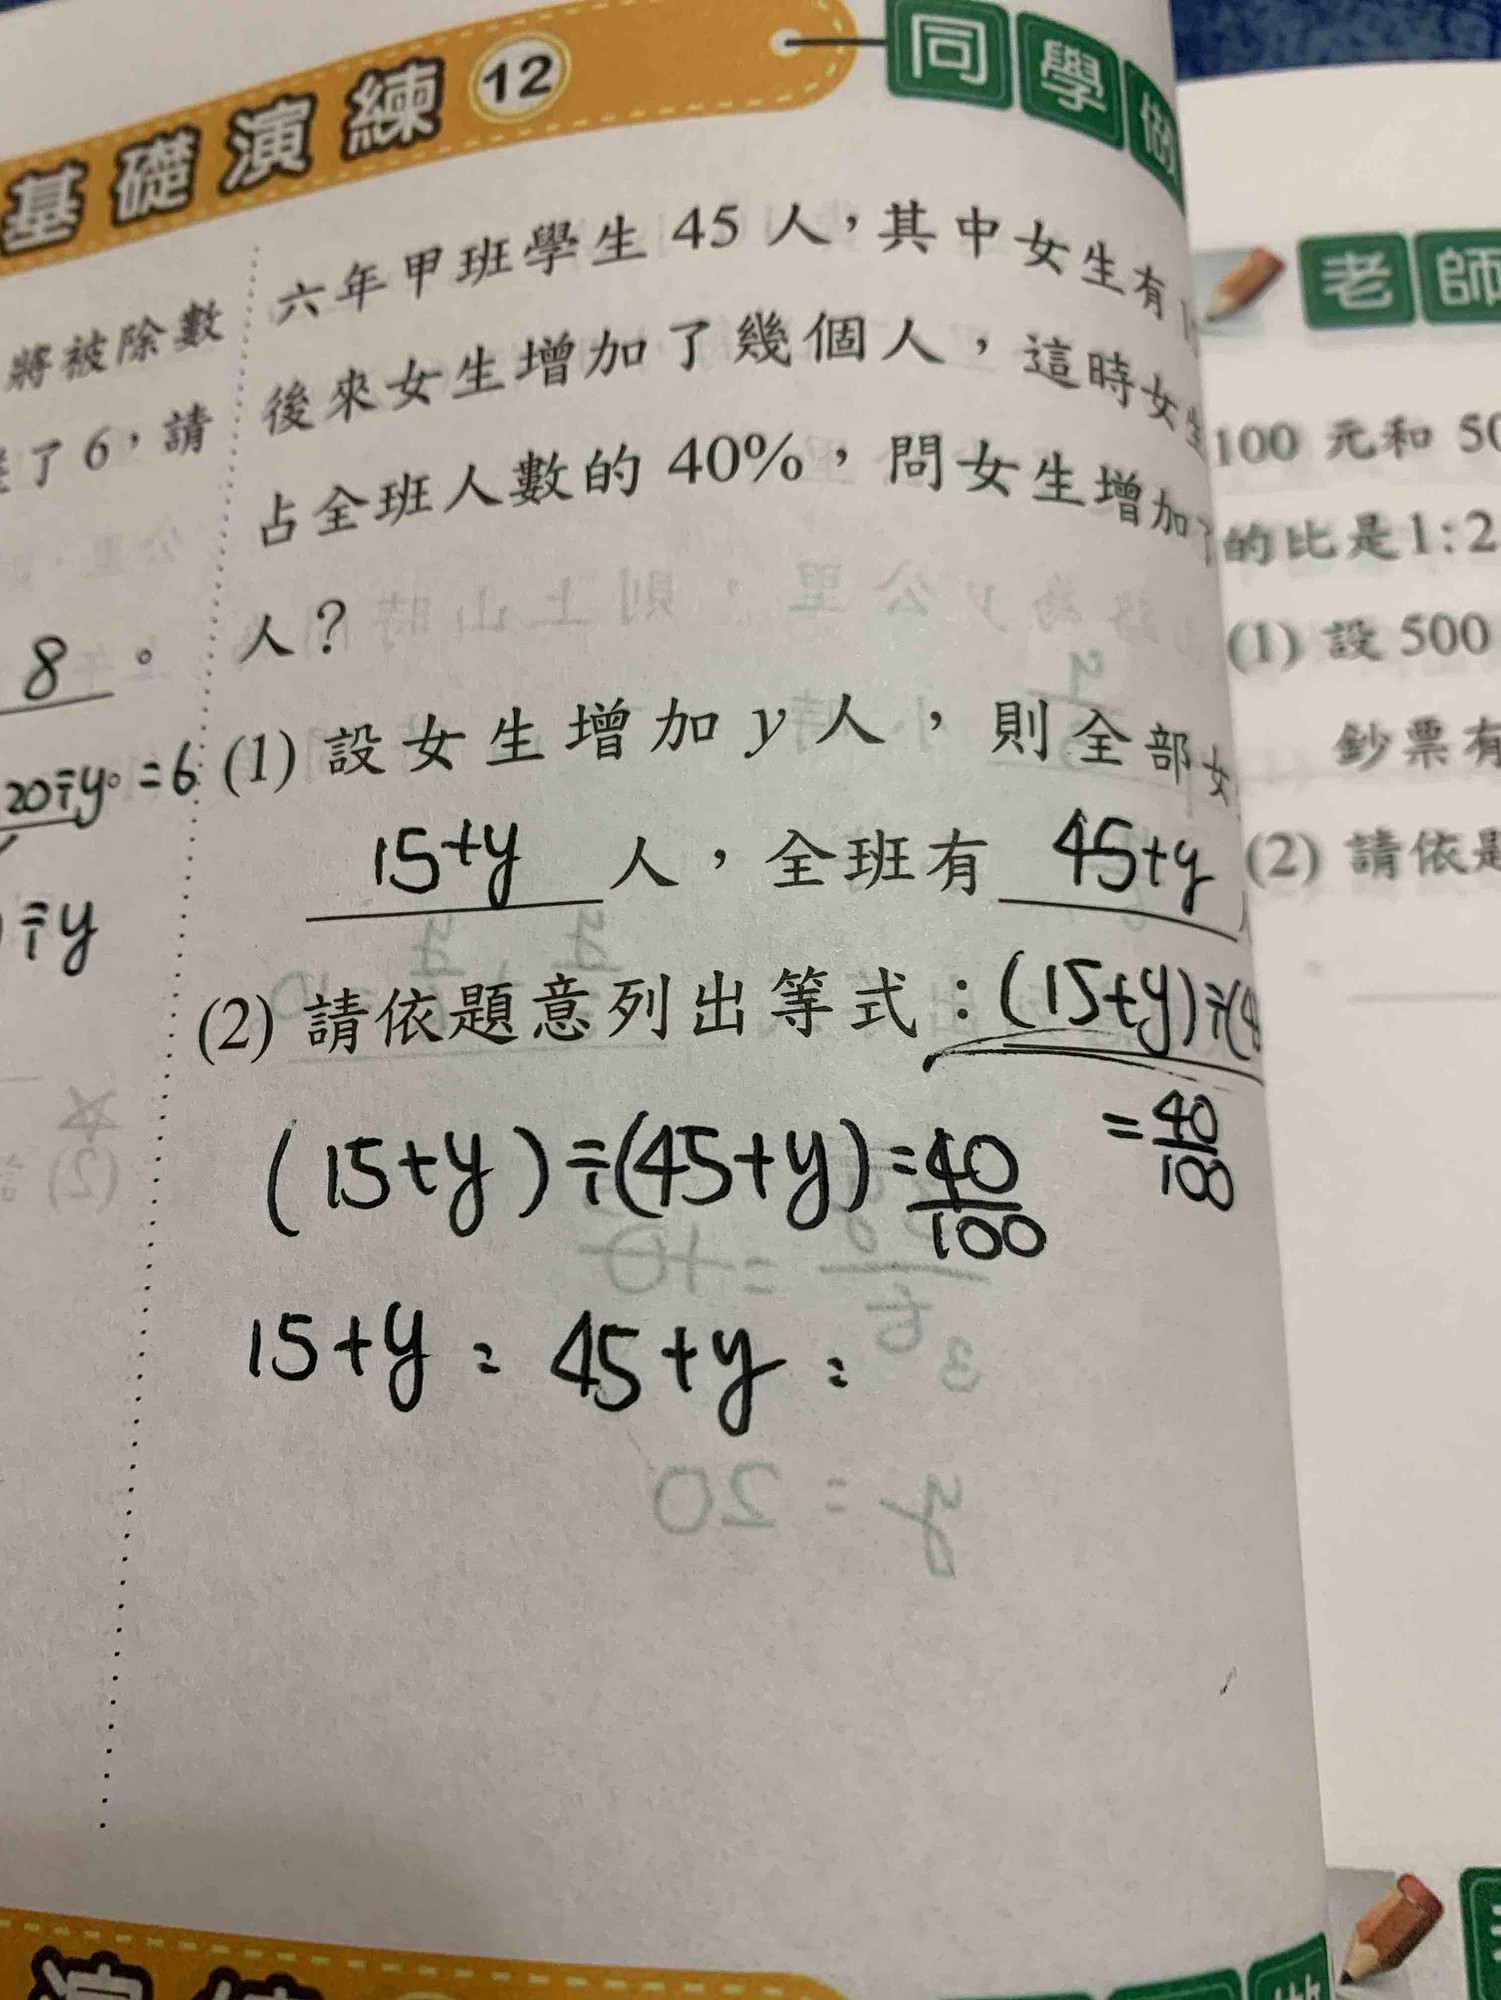 基礎演練 12 同學做
六年甲班學生 45 人，其中女生有
後來女生增加了幾個人，這時女生
占全班人數的 40%，問女生增加了
人？
(1) 設女生增加 y 人，則全部女
15+y 人，全班有 45+y 人
(2) 請依題意列出等式：(15+y)÷(4
=40/100
(15+y)÷(45+y)=40/100
15+y : 45+y =
將被除數
了 6，請
8 。
20÷y。=6
÷y
老師
100 元和 50
的比是1:2
(1) 設 500
鈔票有
(2) 請依題
演練